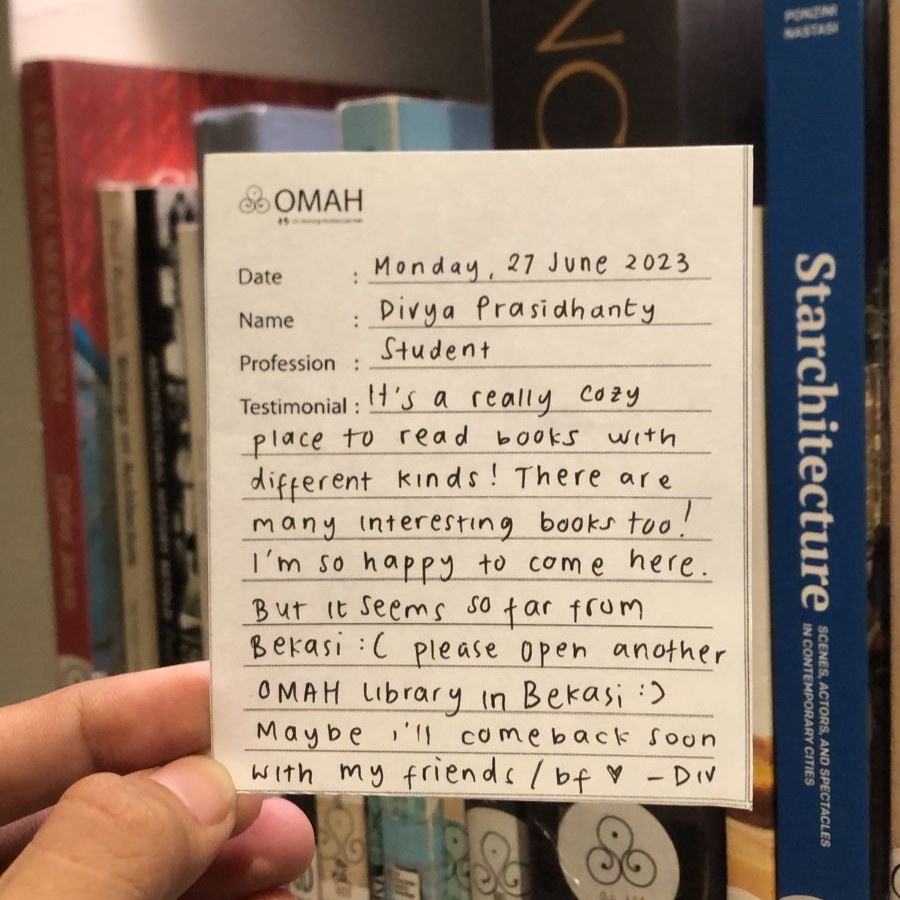 PONZINI
NASTASI
NO
OMAH
Date : Monday, 27 June 2023
Name : Divya Prasidhanty
Profession : Student
Testimonial : It's a really cozy
place to read books with
different kinds! There are
many interesting books too!
I'm so happy to come here.
But it seems so far from
Bekasi :( please open another
OMAH Library in Bekasi :)
Maybe i'll comeback soon
with my friends / bf ♥ - Div
Starchitecture
SCENES, ACTORS, AND SPECTACLES
IN CONTEMPORARY CITIES